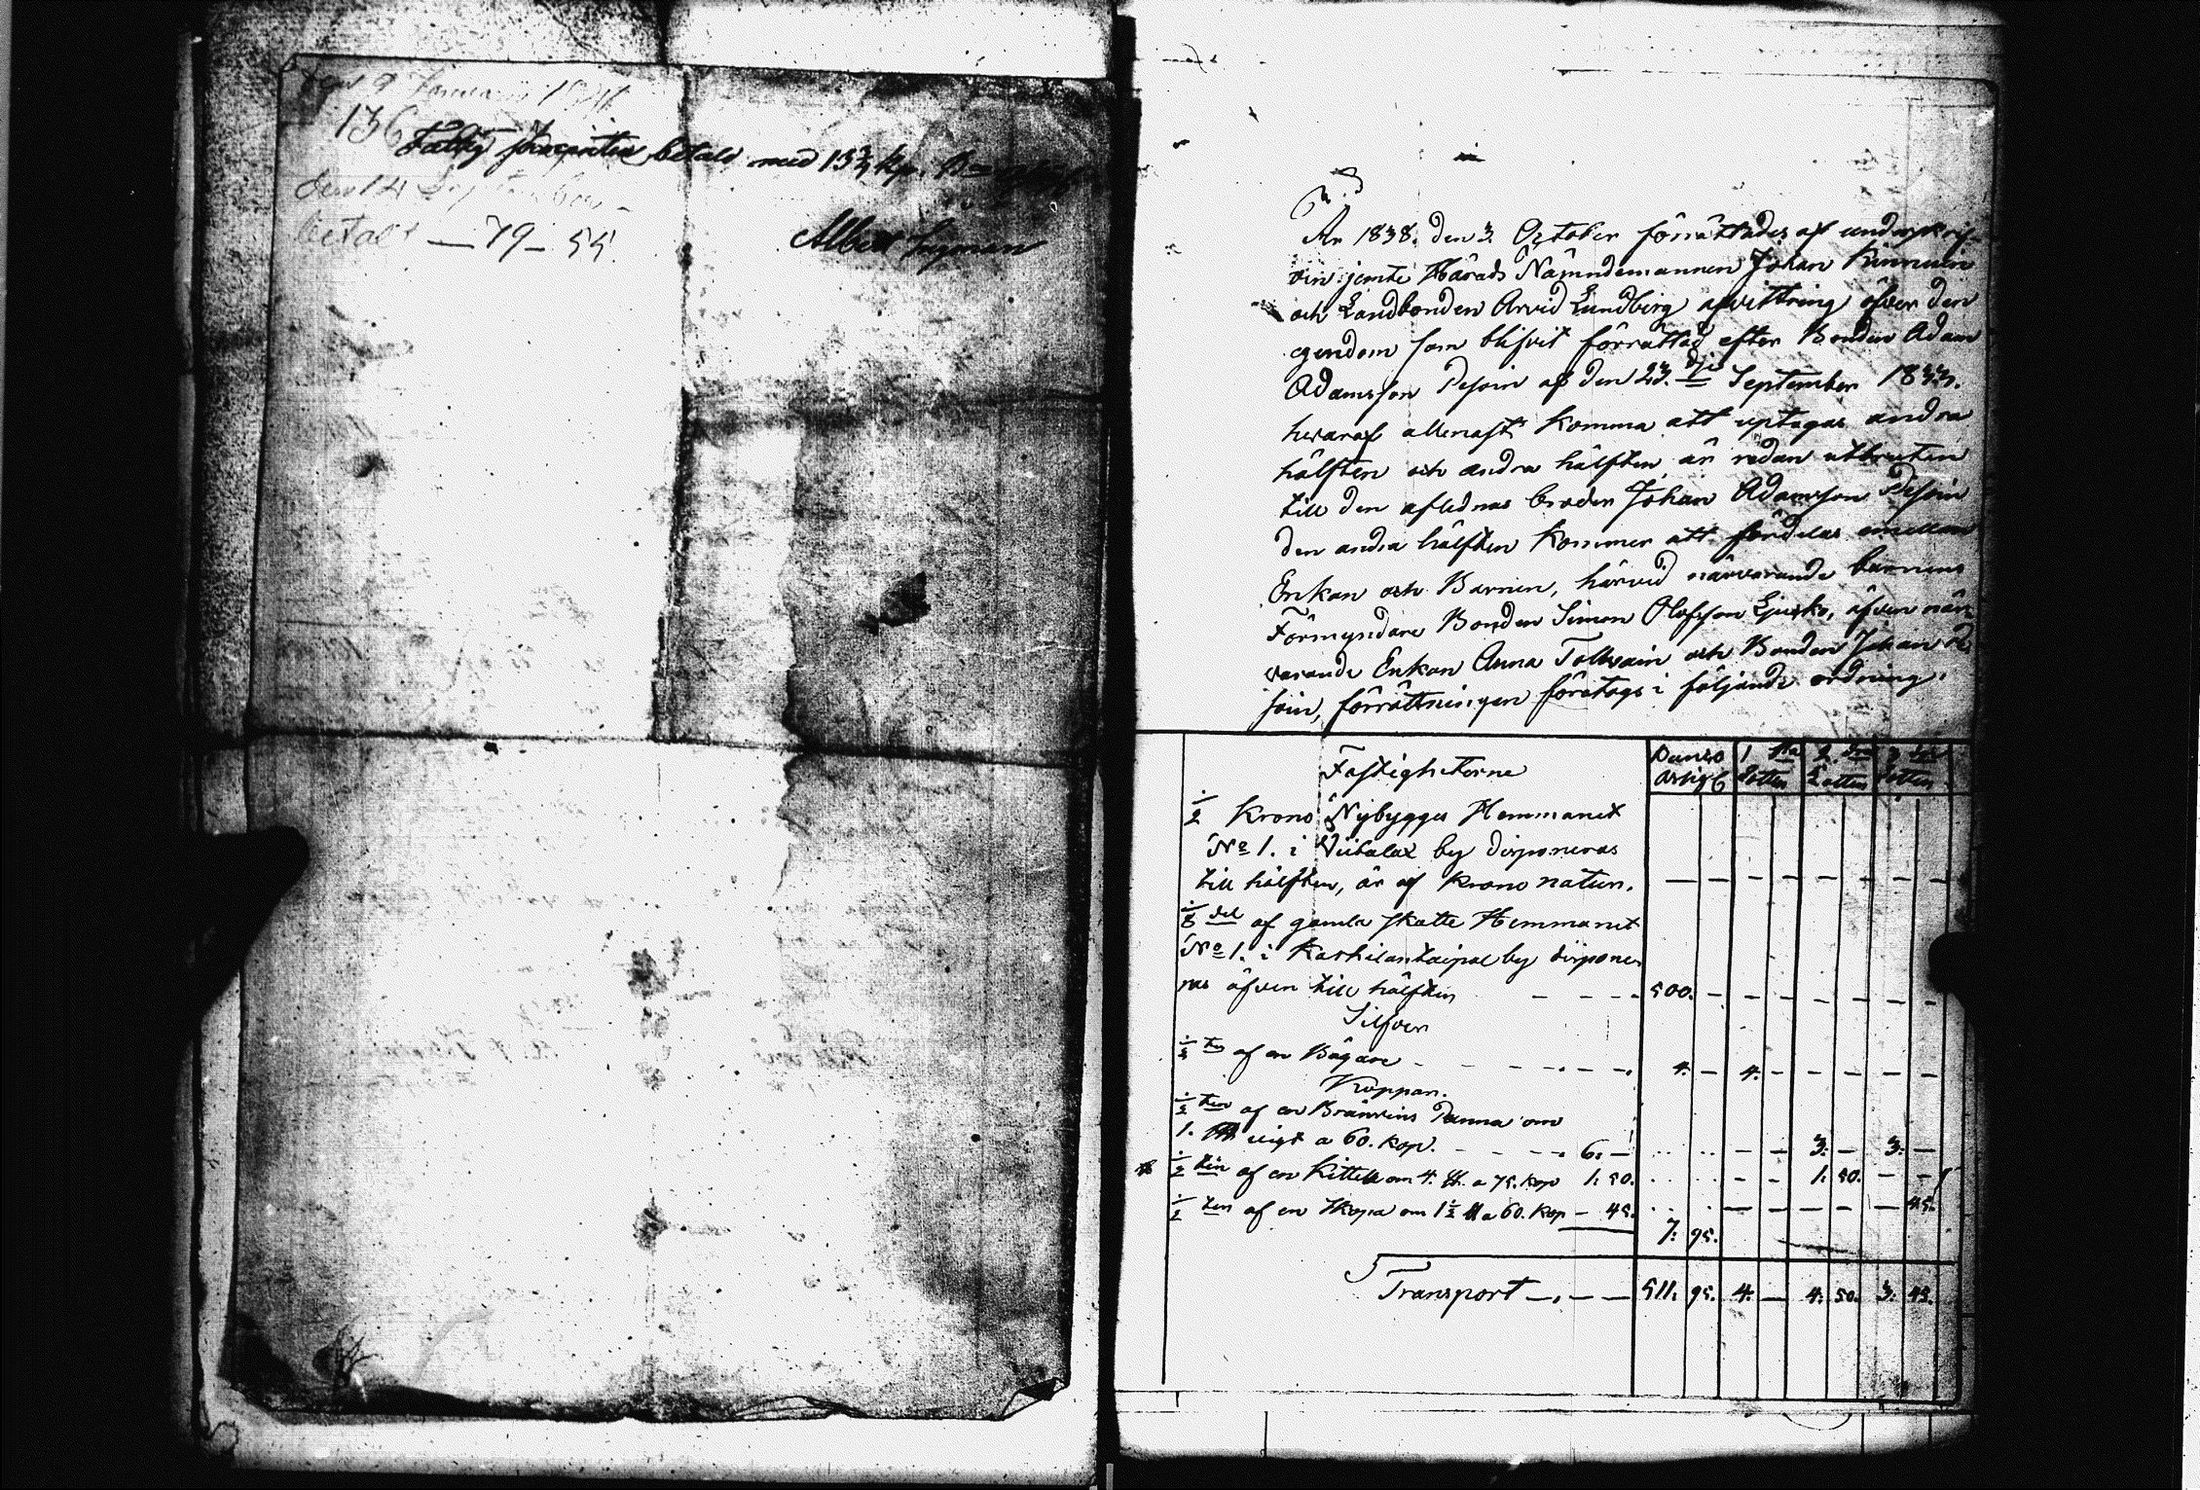 136
Fattig procenten betald med 13 3/4 kp.
den 14 September
betalt — 79 - 55.
Albert Ingman
År 1838. den 3. October förrättades af undeskrif-
ven jemte Härads Nämndemannen Johan Kinnunin
och Landbonden Arvid Lundberg afvittring öfver den
egendom som blifvit förrättad efter Bonden Adam
Adamsson Pesoin af den 23.dje September 1833.
hvaraf allenast komma att uptagas andra
hälften och andra hälften är redan utbruten
till den aflednas broder Johan Adamsson Pesoin
den andra hälften kommer att fördelas emellan
Enkan och Barnen, härvid närvarande barnens
Förmyndare Bonden Simon Olofsson Ljusko, äfven när
varande Enkan Anna Tolvain och Bonden Johan Pe
soin, förrättningen företogs i följande ordning.
Fastigheterne
1 sta Lotten
2 dra Lotten
3 dje Lotten
1/2 Krono Nybygges Hemmanet
No 1. i Viitalax by disponeras
till hälften, är af krono natur. — — — — — — — —
1/8 del af gamla skatte Hemmanet
No 1. i Kaskilantaipal by dispone-
ras äfven till hälften - - - - 500. — — — — — — —
Silfver
1/2 ten af en Bägare - - - - - - 4. — 4. — — — — —
Koppar.
1/2 ten af en Bränvins Panna om
1. vigt a 60. kop. - - - - 6. — - - - - 3. — 3. —
1/2 ten af en Kittel om 4. ℔. a 75. kop 1. 50. - - - - 1. 50. — —
1/2 ten af en Skopa om 1 1/2 ℔ a 60. kop — 45. - - — — — — — 45.
7. 95.
Transport — — — 511. 95. 4. — 4. 50. 3. 45.